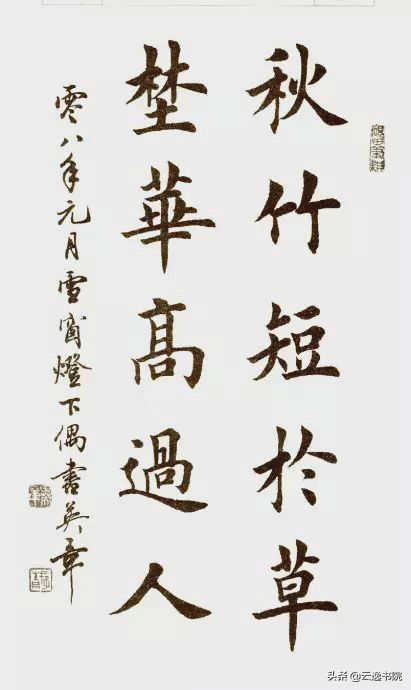 秋竹短於草
埜華高過人
零八年元月雪窗燈下偶書英章
头条 @云逸书院